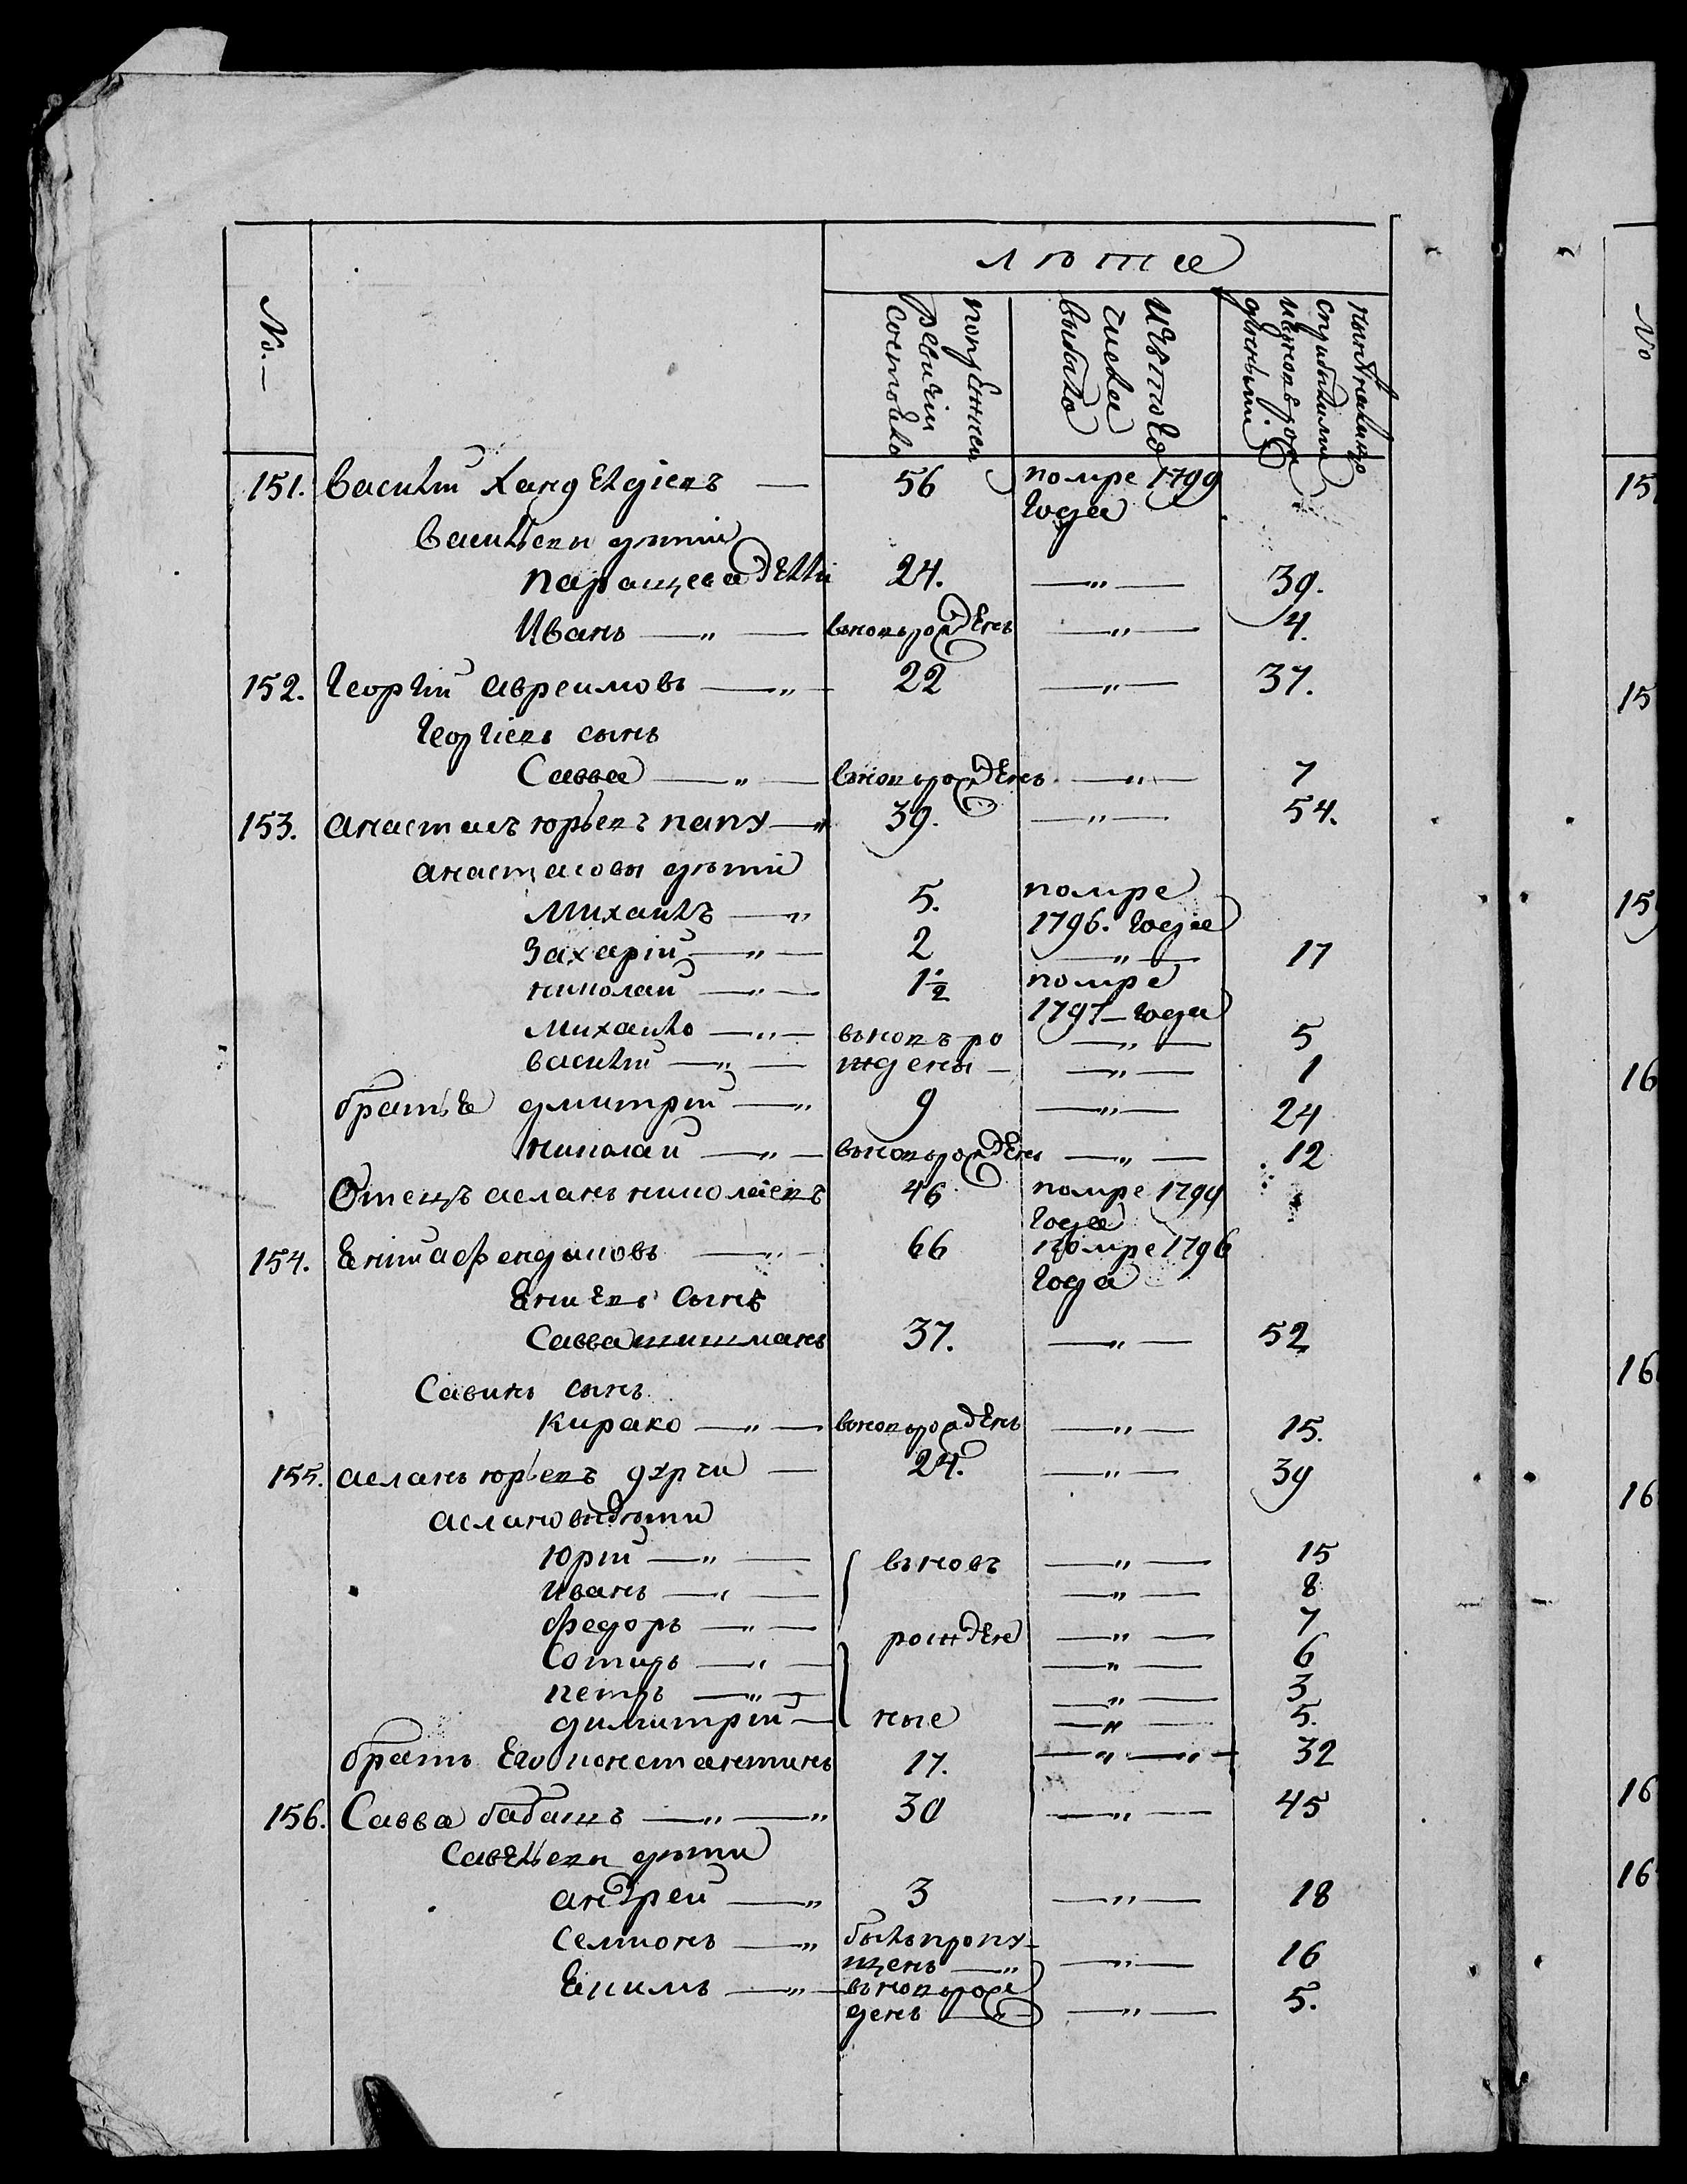 лѣта
№.
попрежней ревизіи состояло
изътого числа выбыло
нынѣ налицо съприбылыми ивновь рожденными
151. Василій Ханделдіевъ — 56 помре 1799
года
Васильевы дѣти
Паращеваделли 24. —„— 39.
Иванъ —„— вновьрожденъ —„— 4.
152. Георгій Авреимовъ —„— 22 —„— 37.
Георгіевъ сынъ
Савва —„— вновьрожденъ —„— 7
153. Анастасъ Юрьевъ папу —„ 39. —„— 54.
Анастасовы дѣти
Михаилъ —„ 5. помре
1796. года
Захарій —„— 2 —„— 17
николай —„— 1½ помре
1797 — года
Михайло —„— вновь ро —„— 5
василій —„— ждены — —„— 1
братья дмитрій —„ 9 —„— 24
николай —„— вновьрожденъ —„— 12
Отецъ асланъ николаевъ 46 помре 1799
года
154. Енитафендиловъ —„— 66 помре 1796
года
Ениевъ сынъ
Савва шишманъ 37. —„— 52
Савинъ сынъ
Кирако —„— вновьрожденъ —„— 15.
155. асланъ юрьевъ дурчи — 24. —„— 39
аслановы дѣти
Юрій —„— вновь —„— 15
иванъ —„— —„— 8
федоръ —„— рожден —„— 7
Сотиръ —„— —„— 6
петръ —„— —„— 3
димитрій — ные —„— 5.
братъ Его константинъ 17. —„—„— 32
156. Савва бабашъ —„—„ 30 —„— 45
Савельевы дѣти
андрей —„ 3 —„— 18
Семионъ —„ быльпропу-
щенъ —„ —„— 16
Екимъ —„— вновьрож
денъ —„— —„— 5.
№
15
15
15
16
16
16
16
16